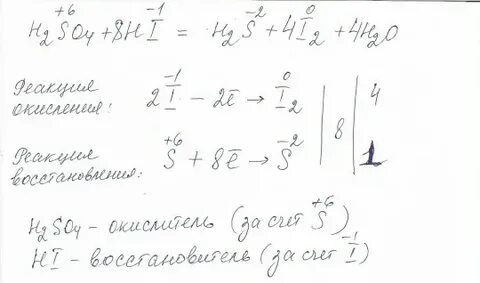 H₂S⁺⁶O₄ + 8HI⁻¹ = H₂S⁻² + 4I₂⁰ + 4H₂O
Реакция окисления: 2I⁻¹ – 2ē → I₂⁰ | 8 | 4
Реакция восстановления: S⁺⁶ + 8ē → S⁻² | 1
H₂SO₄ – окислитель (за счет S⁺⁶)
HI – восстановитель (за счет I⁻¹)